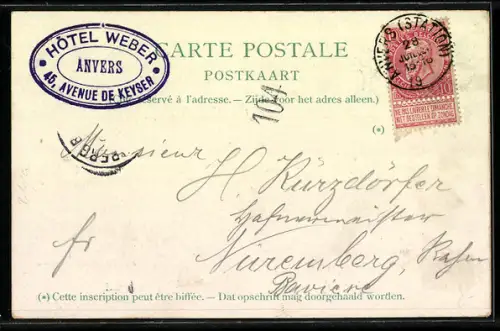 HÔTEL WEBER
ANVERS
45, AVENUE DE KEYSER
CARTE POSTALE
POSTKAART
réservé à l'adresse. — Zijde voor het adres alleen.)
ANVERS (STATION)
10
NE PAS LIVRER LE DIMANCHE
NIET BESTELLEN OP ZONDAG
104
(*)
Monsieur
H. Kürzdörfer
Hafnermeister
fr Nüremberg,
Baviere
(*) Cette inscription peut être biffée. — Dat opschrift mag doorgehaald worden.